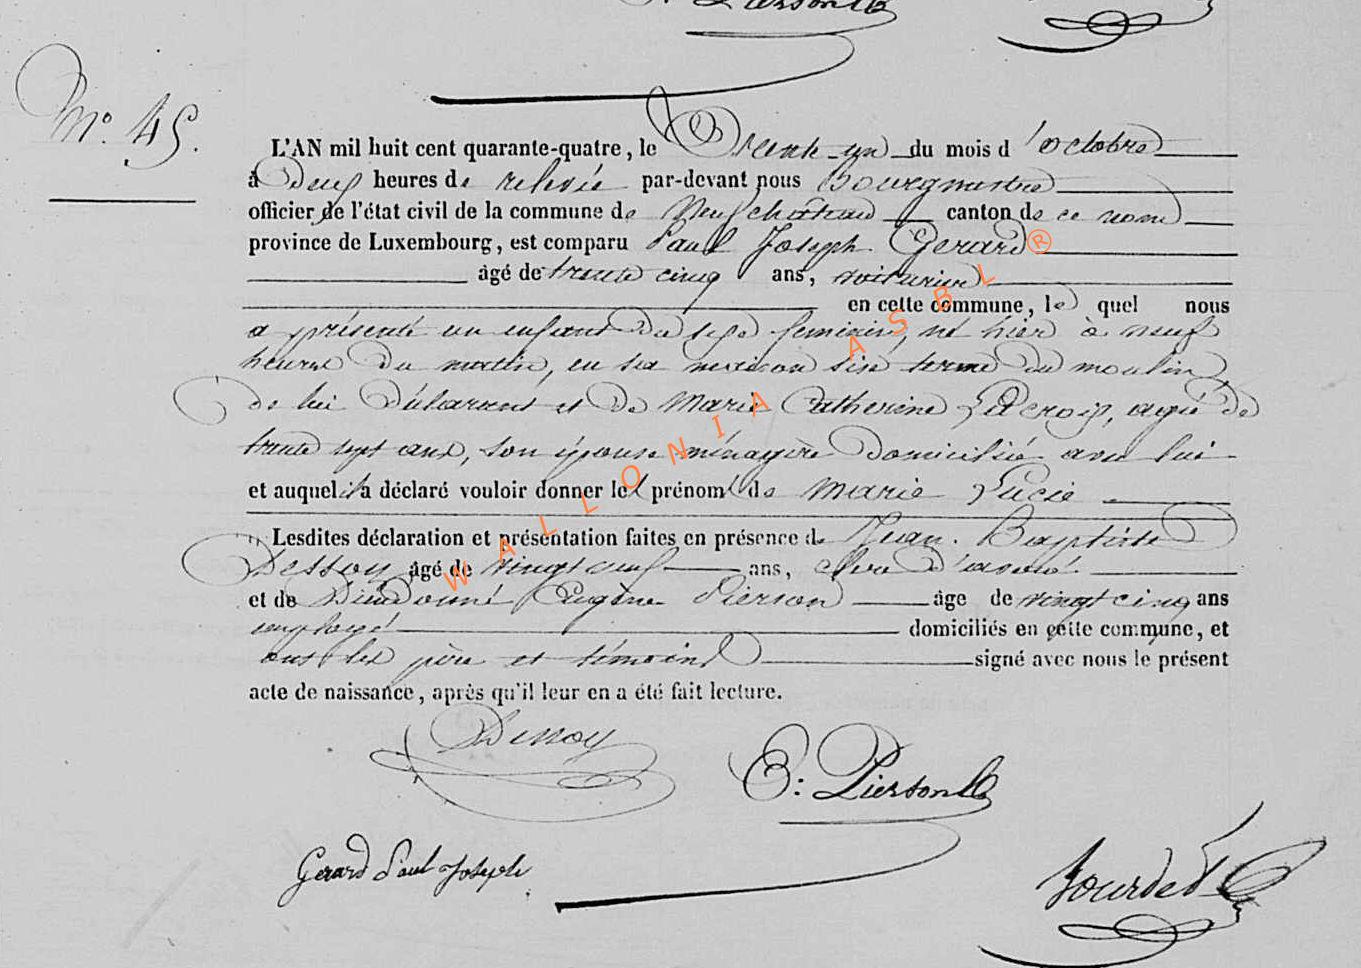 Pierson
N° 45.
L'AN mil huit cent quarante-quatre, le Trente-un du mois d'octobre
à Deux heures de relevée par-devant nous Bourgmestre
officier de l'état civil de la commune de Neufchateau canton de ce nom
province de Luxembourg, est comparu Paul Joseph Gerard
âgé de trente cinq ans, voiturier
en cette commune, le quel nous
a présenté un enfant du sexe feminin, né hier à neuf
heures du matin, en sa maison sise terme du moulin,
de lui Déclarant et de Marie Catherine Lacroix, agée de
trente sept ans, son épouse ménagère domiciliée avec lui
et auquel il a déclaré vouloir donner les prénoms de Marie Lucie
Lesdites déclaration et présentation faites en présence de Jean-Baptiste
Dessoy âgé de vingt neuf ans, clerc d'avoué
et de Dieudonné Eugène Pierson âge de vingt cinq ans
employé domiciliés en cette commune, et
ont les père et témoins signé avec nous le présent
acte de naissance, après qu'il leur en a été fait lecture.
Dessoy
E: Pierson
Gerard Paul Joseph
Gourdet
WALLONIA ASBL ®